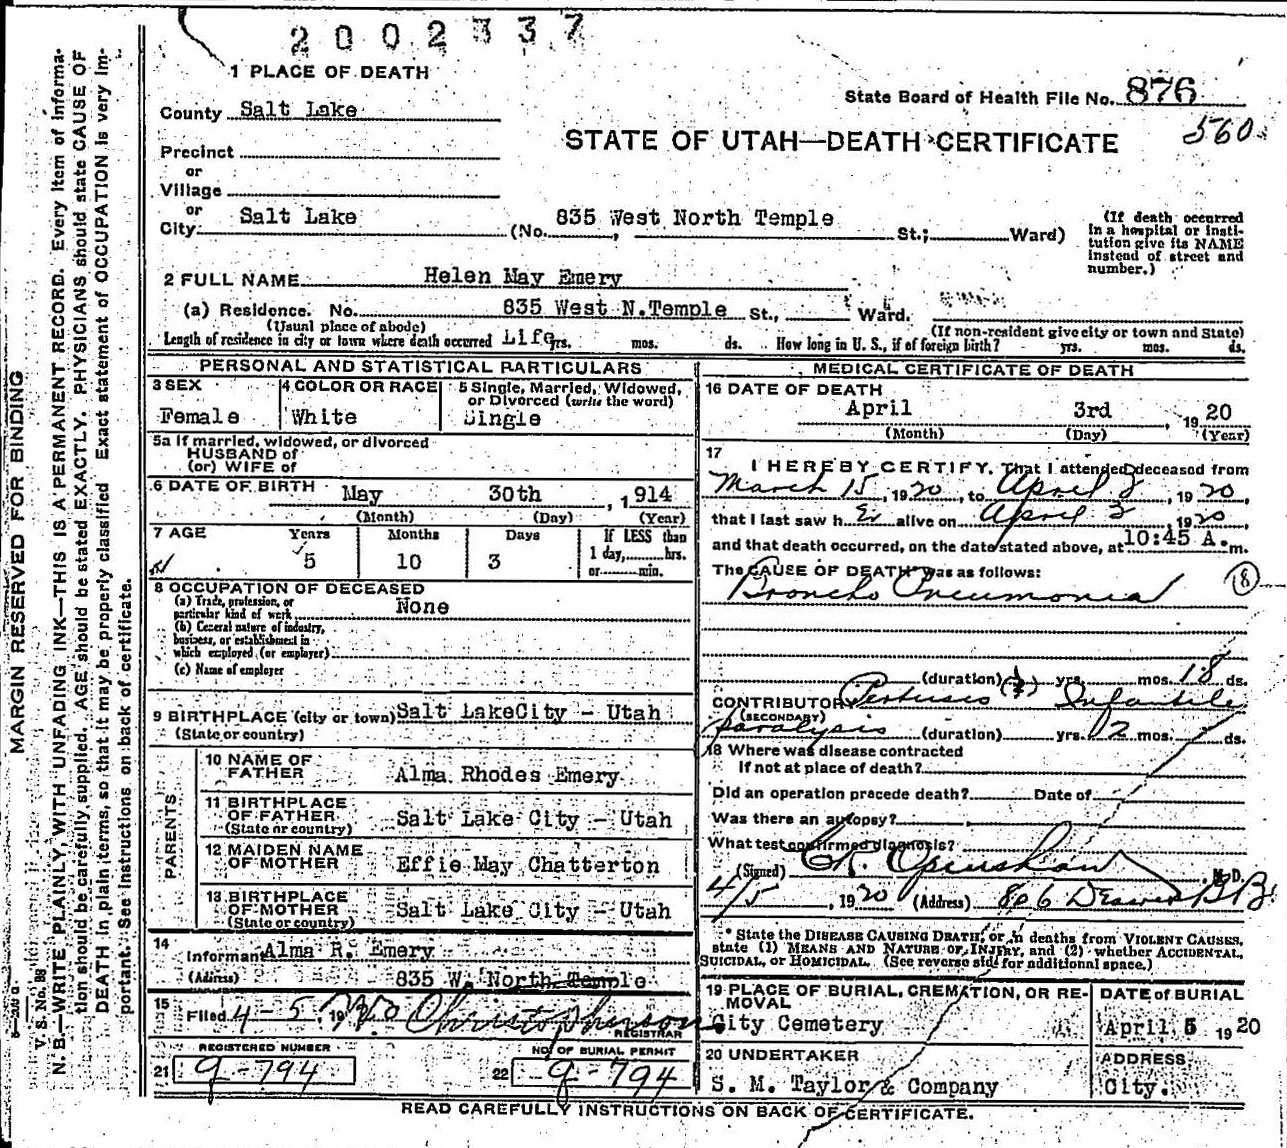 2002337
1 PLACE OF DEATH
State Board of Health File No. 876
560
County Salt Lake
STATE OF UTAH—DEATH CERTIFICATE
Precinct
or
Village
or
City Salt Lake (No. 835 West North Temple St.; Ward)
(If death occurred in a hospital or insti-
tution give its NAME
instead of street and
number.)
2 FULL NAME Helen May Emery
(a) Residence. No. 835 West N.Temple St., Ward.
(Usual place of abode) (If non-resident give city or town and State)
Length of residence in city or town where death occurred Life yrs. mos. ds. How long in U. S., if of foreign birth? yrs. mos. ds.
PERSONAL AND STATISTICAL PARTICULARS
3 SEX 4 COLOR OR RACE 5 Single, Married, Widowed,
or Divorced (write the word)
Female White Single
5a If married, widowed, or divorced
HUSBAND of
(or) WIFE of
6 DATE OF BIRTH May 30th, 1914
(Month) (Day) (Year)
7 AGE Years Months Days If LESS than
1 day, hrs.
or min.
5 10 3
8 OCCUPATION OF DECEASED
(a) Trade, profession, or
particular kind of work None
(b) General nature of industry,
business, or establishment in
which employed (or employer)
(c) Name of employer
9 BIRTHPLACE (city or town) Salt LakeCity - Utah
(State or country)
PARENTS
10 NAME OF
FATHER Alma Rhodes Emery
11 BIRTHPLACE
OF FATHER Salt Lake City - Utah
(State or country)
12 MAIDEN NAME
OF MOTHER Effie May Chatterton
13 BIRTHPLACE
OF MOTHER Salt Lake City - Utah
(State or country)
14
Informant Alma R. Emery
(Adress) 835 W. North Temple
15
Filed 4-5, 19 Christopherson
REGISTRAR
REGISTERED NUMBER NO. OF BURIAL PERMIT
21 9-794 22 9-794
MEDICAL CERTIFICATE OF DEATH
16 DATE OF DEATH
April 3rd, 1920
(Month) (Day) (Year)
17
I HEREBY CERTIFY, That I attended deceased from
March 15, 1920, to April 3, 1920,
that I last saw h Er alive on April 3, 1920
and that death occurred, on the date stated above, at 10:45 A.m.
The CAUSE OF DEATH* was as follows:
Broncho Pneumonia (8)
(duration) yrs. mos. 18 ds.
CONTRIBUTORY Pertussis Infantile
(SECONDARY)
paralysis (duration) yrs. 2 mos. ds.
18 Where was disease contracted
If not at place of death?
Did an operation precede death? Date of
Was there an autopsy?
What test confirmed diagnosis?
(Signed) Openshaw, M. D.
4/5, 1920 (Address) 806 Deseret B B
* State the DISEASE CAUSING DEATH, or in deaths from VIOLENT CAUSES,
state (1) MEANS AND NATURE OF INJURY, and (2) whether ACCIDENTAL,
SUICIDAL, or HOMICIDAL. (See reverse side for additional space.)
19 PLACE OF BURIAL, CREMATION, OR RE-
MOVAL
City Cemetery
DATE of BURIAL
April 5 1920
20 UNDERTAKER
S. M. Taylor & Company
ADDRESS
City.
READ CAREFULLY INSTRUCTIONS ON BACK OF CERTIFICATE.
MARGIN RESERVED FOR BINDING
V. S. No. 98
N. B.—WRITE PLAINLY, WITH UNFADING INK—THIS IS A PERMANENT RECORD. Every item of informa-
tion should be carefully supplied. AGE should be stated EXACTLY. PHYSICIANS should state CAUSE OF
DEATH in plain terms, so that it may be properly classified. Exact statement of OCCUPATION is very im-
portant. See instructions on back of certificate.